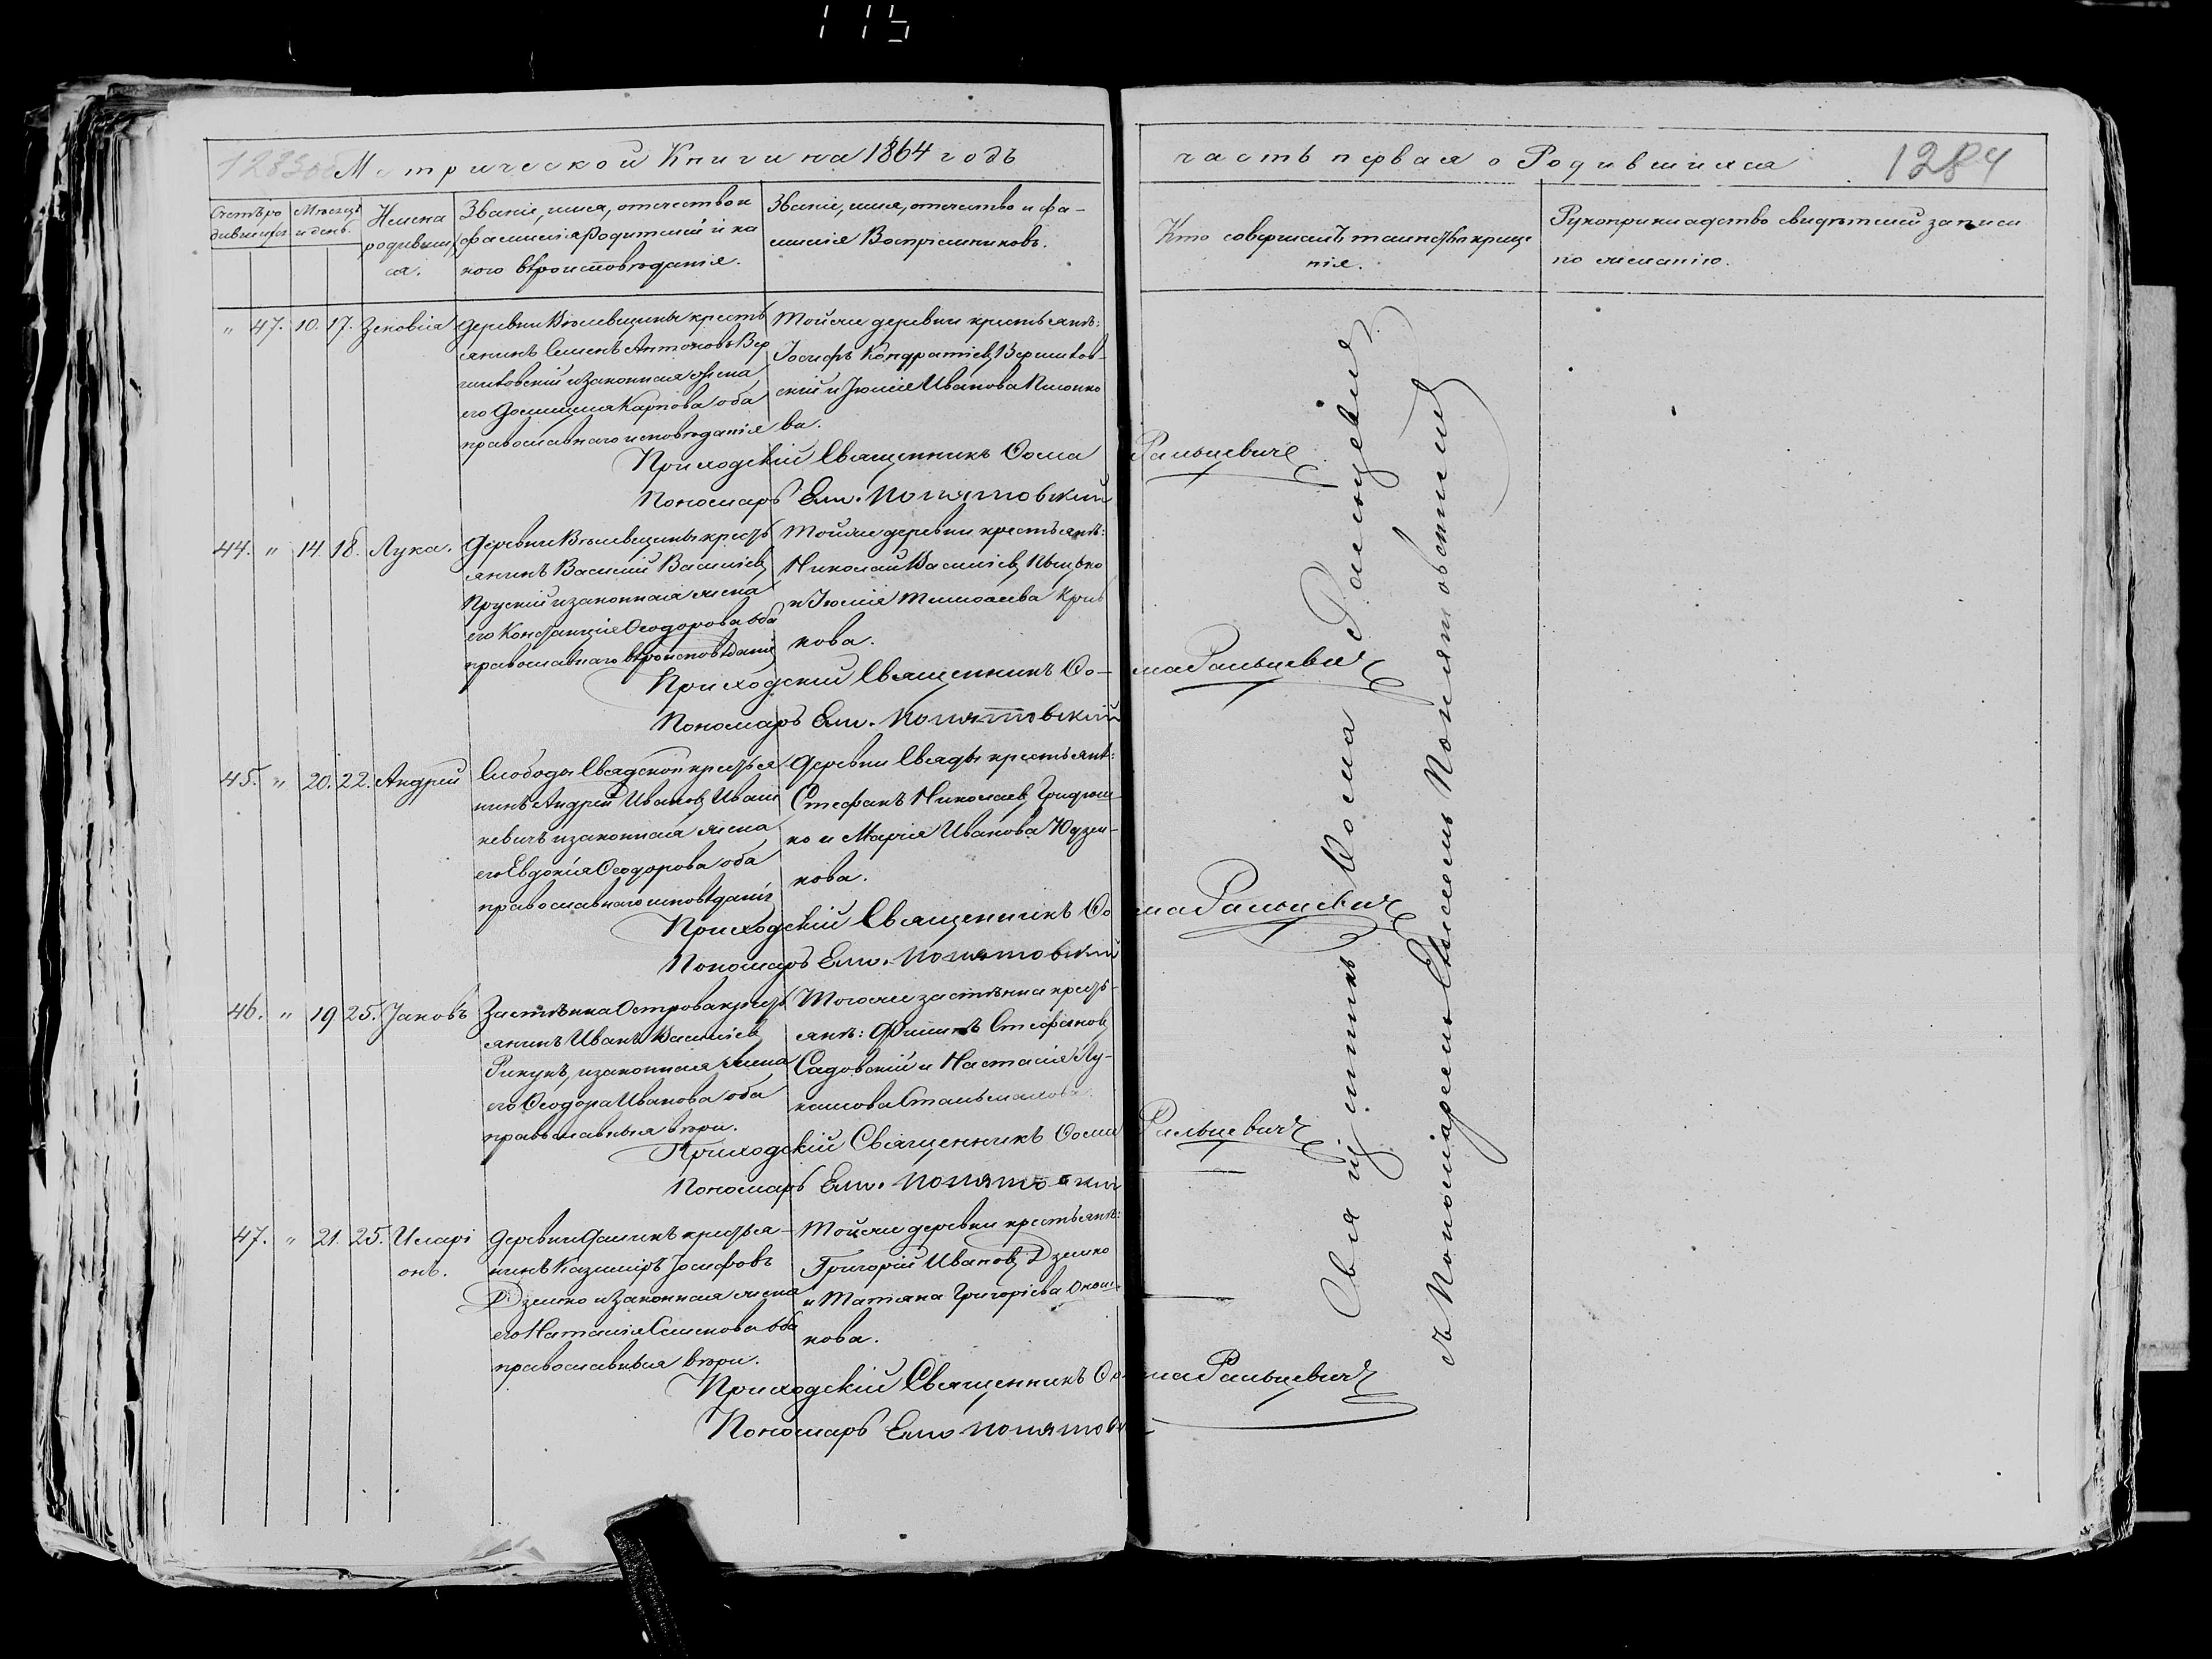 115
1283об Метрической Книги на 1864 годъ
часть первая о Родившихся 1284
Счетъ ро
дившихся
Мѣсяцъ
и день.
Имена
родивших
ся.
Званіе, имя, отечество и
фамилія Родителей и ка
кого вѣроисповѣданія.
Званіе, имя, отечество и фа-
милія Воспріемниковъ.
Кто совершалъ таинство креще
нія.
Рукоприкладство свидѣтелей записи
по желанію.
" 47. 10. 17. Зеновія
деревни Вѣлевщины кресть
янинъ Семенъ Антоновъ Вер
шиловскій и законная жена
его Домицеля Карпова оба
православнаго исповѣданія
Тойже деревни крестьянѣ:
Іосифъ Кондратіевъ Вершилов-
скій и Юлія Иванова
ва.
Приходскій Священникъ Ѳома Ральцевичъ
Пономарь Ем. Понятовскій
44. " 14. 18. Лука.
Деревни Вѣлевщины кресть
янинъ Василій Василіевъ
Прускій и законная жена
его Констанція Ѳеодорова оба
православнаго вѣроисповѣданія
Тойже деревни крестьянѣ:
Николай Василіевъ
и Юлія Тимоѳеева Крив
кова.
Приходскій Священникъ Ѳо-ма Ральцевичъ
Пономарь Ем. Понятовскій
45. " 20. 22. Андрей
Слободы Свядской крестья
нинъ Андрей Ивановъ Иваш
кевичъ и законная жена
его Евдокія Ѳеодорова оба
православнаго исповѣданія
Деревни Свяды крестьянѣ:
Стефанъ Николаевъ Гридюш
ко и Марія Иванова Юдзен-
кова.
Приходскій Священникъ Ѳома Ральцевичъ
Пономарь Ем. Понятовскій
46. " 19 25. Іаковъ
Застѣнка Острова кресть
янинъ Иванъ Василіевъ
и законная жена
его Ѳеодора Иванова оба
православныя вѣры.
Тогоже застѣнка кресть-
янѣ: Филипъ Стефановъ
Садовскій и Настасія Лу-
кашова Стальмакова
Приходскій Священникъ Ѳома Ральцевичъ
Пономарь Ем. Понятовскій
47. " 21. 25. Иларі
онъ.
деревни крестья-
нинъ Казиміръ Іосифовъ
Дземко и законная жена
его Наталія Семенова оба
православныя вѣры.
Тойже деревни крестьянѣ:
Григорій Ивановъ Дземко
и Татяна Григоріева
кова.
Приходскій Священникъ Ѳома Ральцевичъ
Пономарь Ем Понятов
Священникъ Ѳома Ральцевичъ
съ Пономаремъ Понятовскимъ